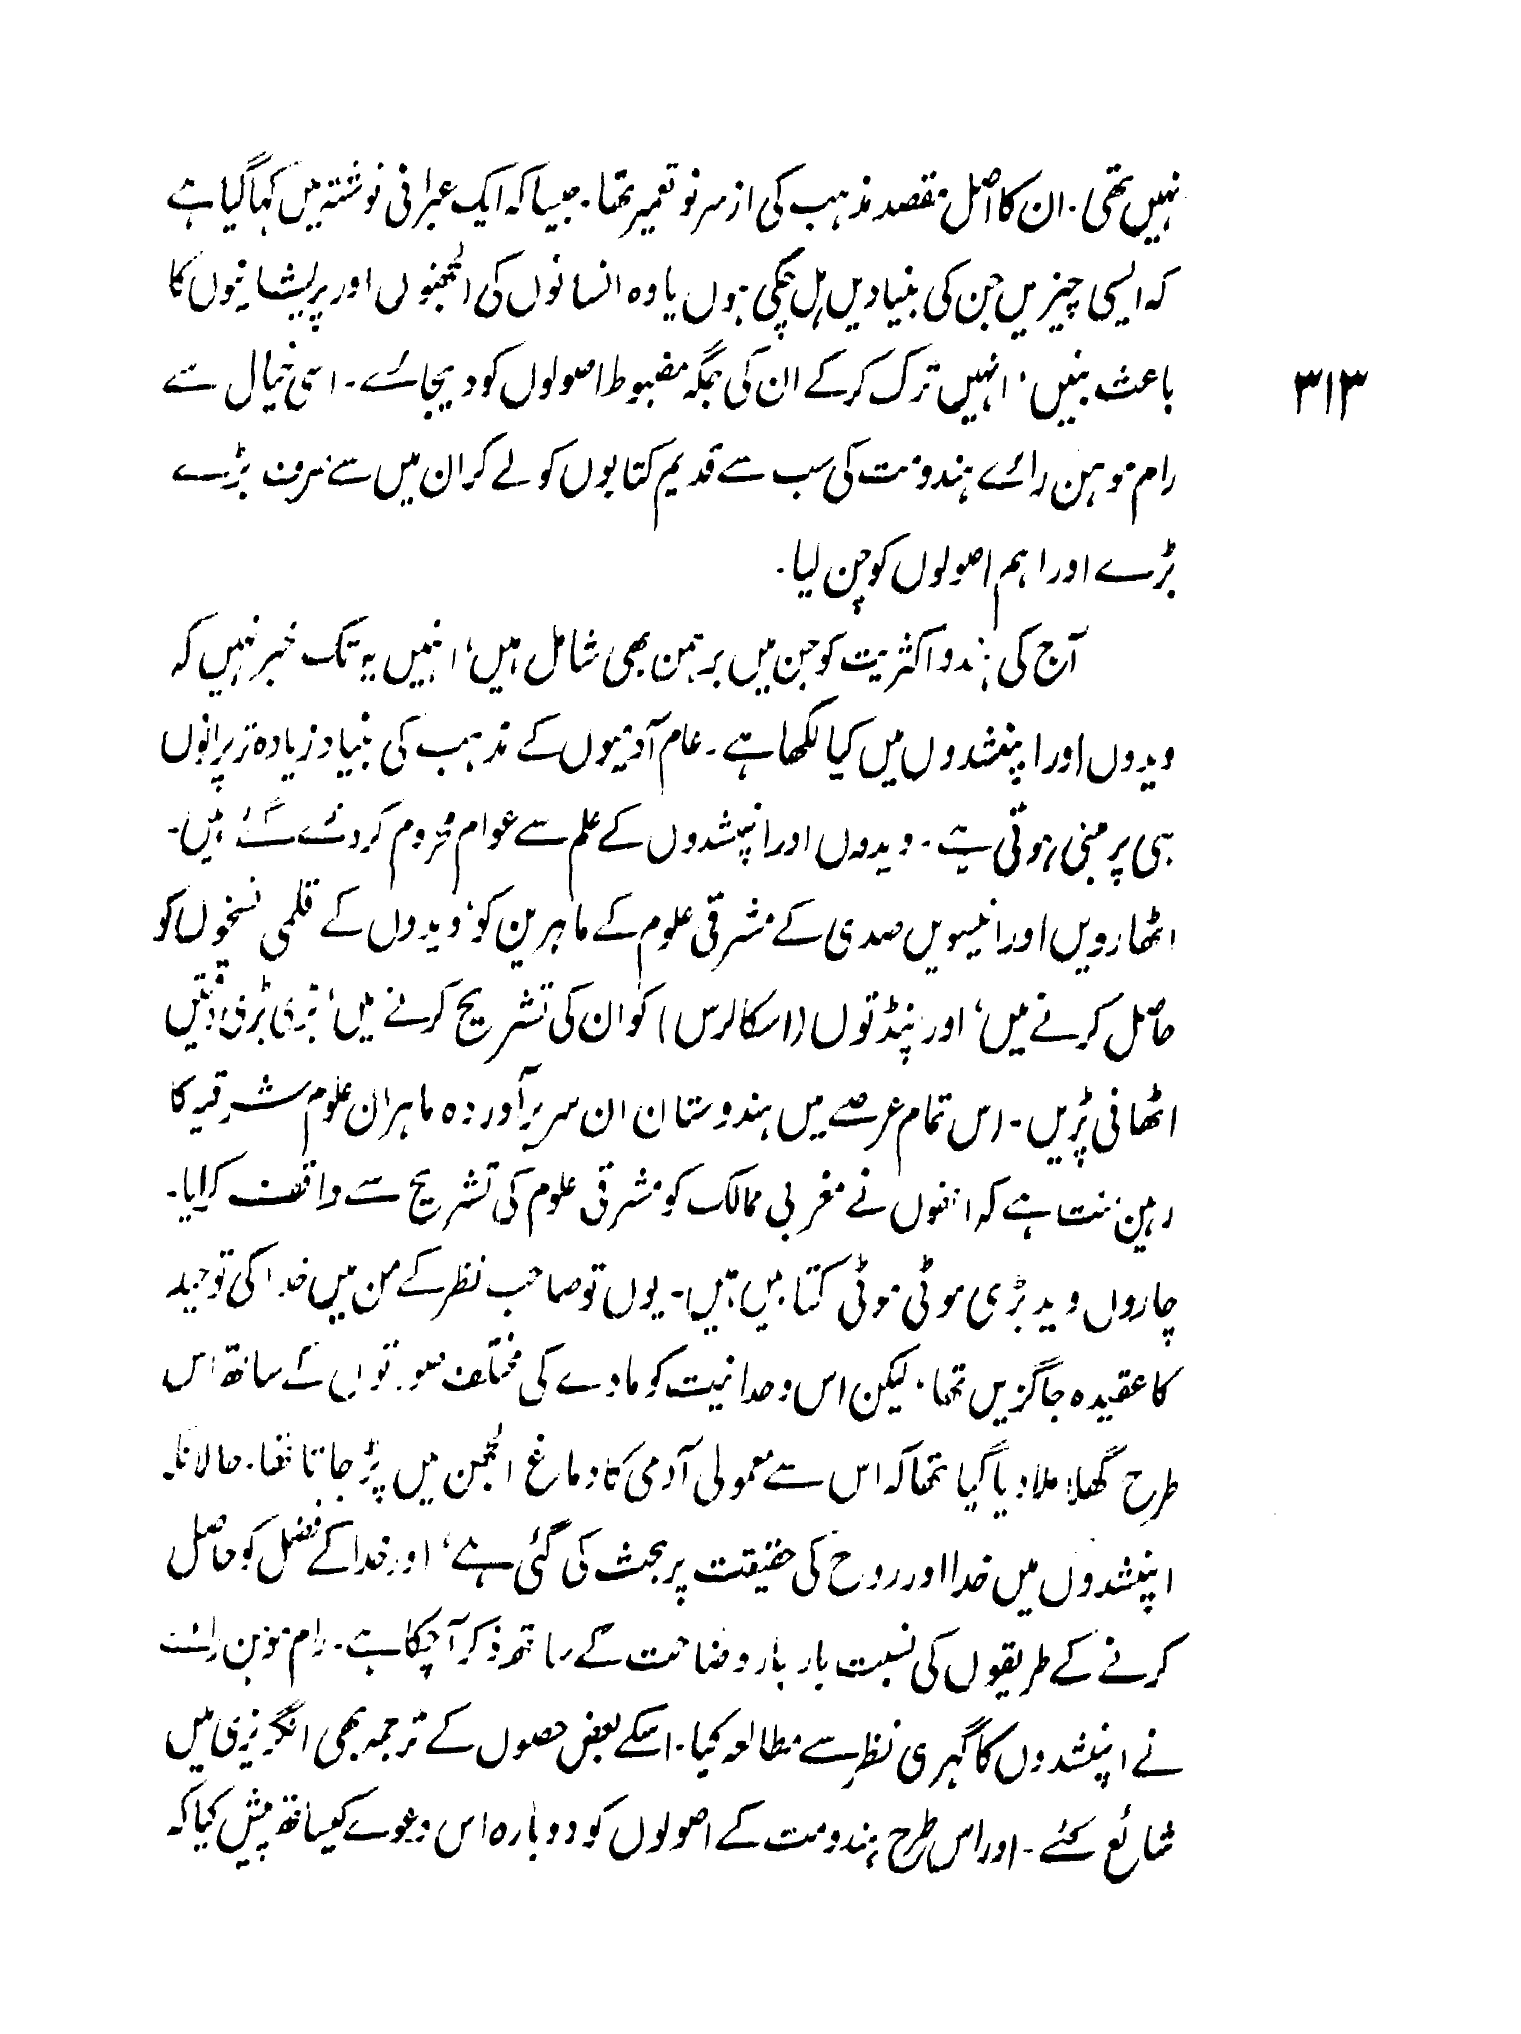 نہیں تھی۔ ان کا اصل مقصد مذہب کی از سرنو تعمیر تھا۔ جیسا کہ ایک عبرانی نوشتہ میں کہا گیا ہے
کہ ایسی چیزیں جن کی بنیادیں ہل چکی ہوں یا وہ انسانوں کی الجھنوں اور پریشانیوں کا
باعث بنیں، انہیں ترک کرکے ان کی جگہ مضبوط اصولوں کو دیجائے۔ اسی خیال سے
۳۱۳
رام موہن رائے ہندومت کی سب سے قدیم کتابوں کو لے کر ان میں سے صرف بڑے
بڑے اور اہم اصولوں کو چن لیا۔
آج کی ہندو اکثریت کو جن میں برہمن بھی شامل ہیں، انہیں یہ تک خبر نہیں کہ
ویدوں اور اپنشدوں میں کیا لکھا ہے۔ عام آدمیوں کے مذہب کی بنیاد زیادہ تر پرانوں
ہی پر مبنی ہوتی ہے۔ ویدوں اور اپنشدوں کے علم سے عوام محروم کردئے گئے ہیں۔
اٹھارویں اور انیسویں صدی کے مشرقی علوم کے ماہرین کو، ویدوں کے قلمی نسخوں کو
حاصل کرنے میں، اور پنڈتوں (اسکالرس) کو ان کی تشریح کرنے میں، بڑی بڑی دقتیں
اٹھانی پڑیں۔ اس تمام عرصے میں ہندوستان ان سربرآوردہ ماہران علوم شرقیہ کا
رہین منت ہے کہ انھوں نے مغربی ممالک کو مشرقی علوم کی تشریح سے واقف کرایا۔
چاروں وید بڑی موٹی موٹی کتابیں ہیں۔ یوں تو صاحب نظر کے من میں خدا کی توحید
کا عقیدہ جاگزیں تھا۔ لیکن اس وحدانیت کو مادے کی مختلف صورتوں کے ساتھ اس
طرح گھلا ملا دیا گیا تھا کہ اس سے معمولی آدمی کا دماغ الجھن میں پڑ جاتا تھا۔ حالانکہ
اپنشدوں میں خدا اور روح کی حقیقت پر بحث کی گئی ہے، اور خدا کے فضل کو حاصل
کرنے کے طریقوں کی نسبت بار بار وضاحت کے ساتھ ذکر آچکا ہے۔ رام موہن رائے
نے اپنشدوں کا گہری نظر سے مطالعہ کیا۔ اسکے بعض حصوں کے ترجمہ بھی انگریزی میں
شائع کئے۔ اور اس طرح ہندومت کے اصولوں کو دوبارہ اس دعوے کیساتھ پیش کیا کہ